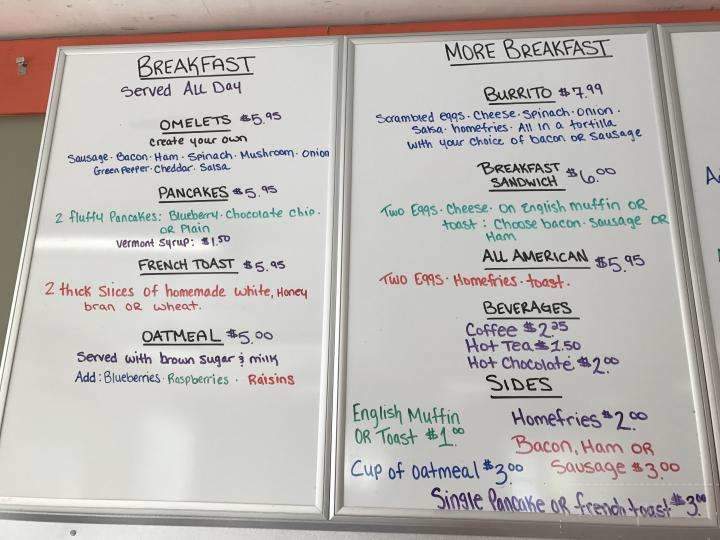 BREAKFAST
Served All Day
OMELETS $5.95
create your own
Sausage · Bacon · Ham · Spinach · Mushroom · Onion
Green Pepper · Cheddar · Salsa
PANCAKES $5.95
2 fluffy Pancakes: Blueberry · Chocolate chip ·
OR Plain
Vermont Syrup: $1.50
FRENCH TOAST $5.95
2 thick slices of homemade white, Honey
bran OR wheat.
OATMEAL $5.00
Served with brown sugar & milk
Add: Blueberries · Raspberries · Raisins
MORE BREAKFAST
BURRITO $7.99
Scrambled eggs · Cheese · Spinach · onion ·
Salsa · homefries · All in a tortilla
with your choice of bacon or sausage
BREAKFAST
SANDWICH $6.00
Two Eggs · Cheese · On English muffin OR
toast : Choose bacon · Sausage OR
Ham
ALL AMERICAN $5.95
Two Eggs · Homefries · toast.
BEVERAGES
Coffee $2.25
Hot Tea $1.50
Hot Chocolate $2.00
SIDES
English Muffin
OR Toast $1.00
Homefries $2.00
Bacon, Ham OR
Sausage $3.00
Cup of oatmeal $3.00
Single Pancake OR french toast $3.00